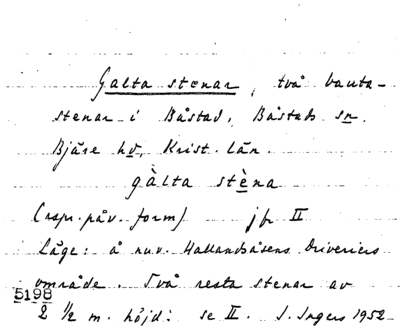 Galta stenar, två bauta-
stenar i Båstad, Båstads sn.
Bjäre hd, Krist. län.
gàlta stèna
(rspr. påv. form) jfr II
Läge: å nuv. Hallandsåsens Drivericrs
område. Två resta stenar av
5198
2 ½ m. höjd: se II. I. Ingers 1952